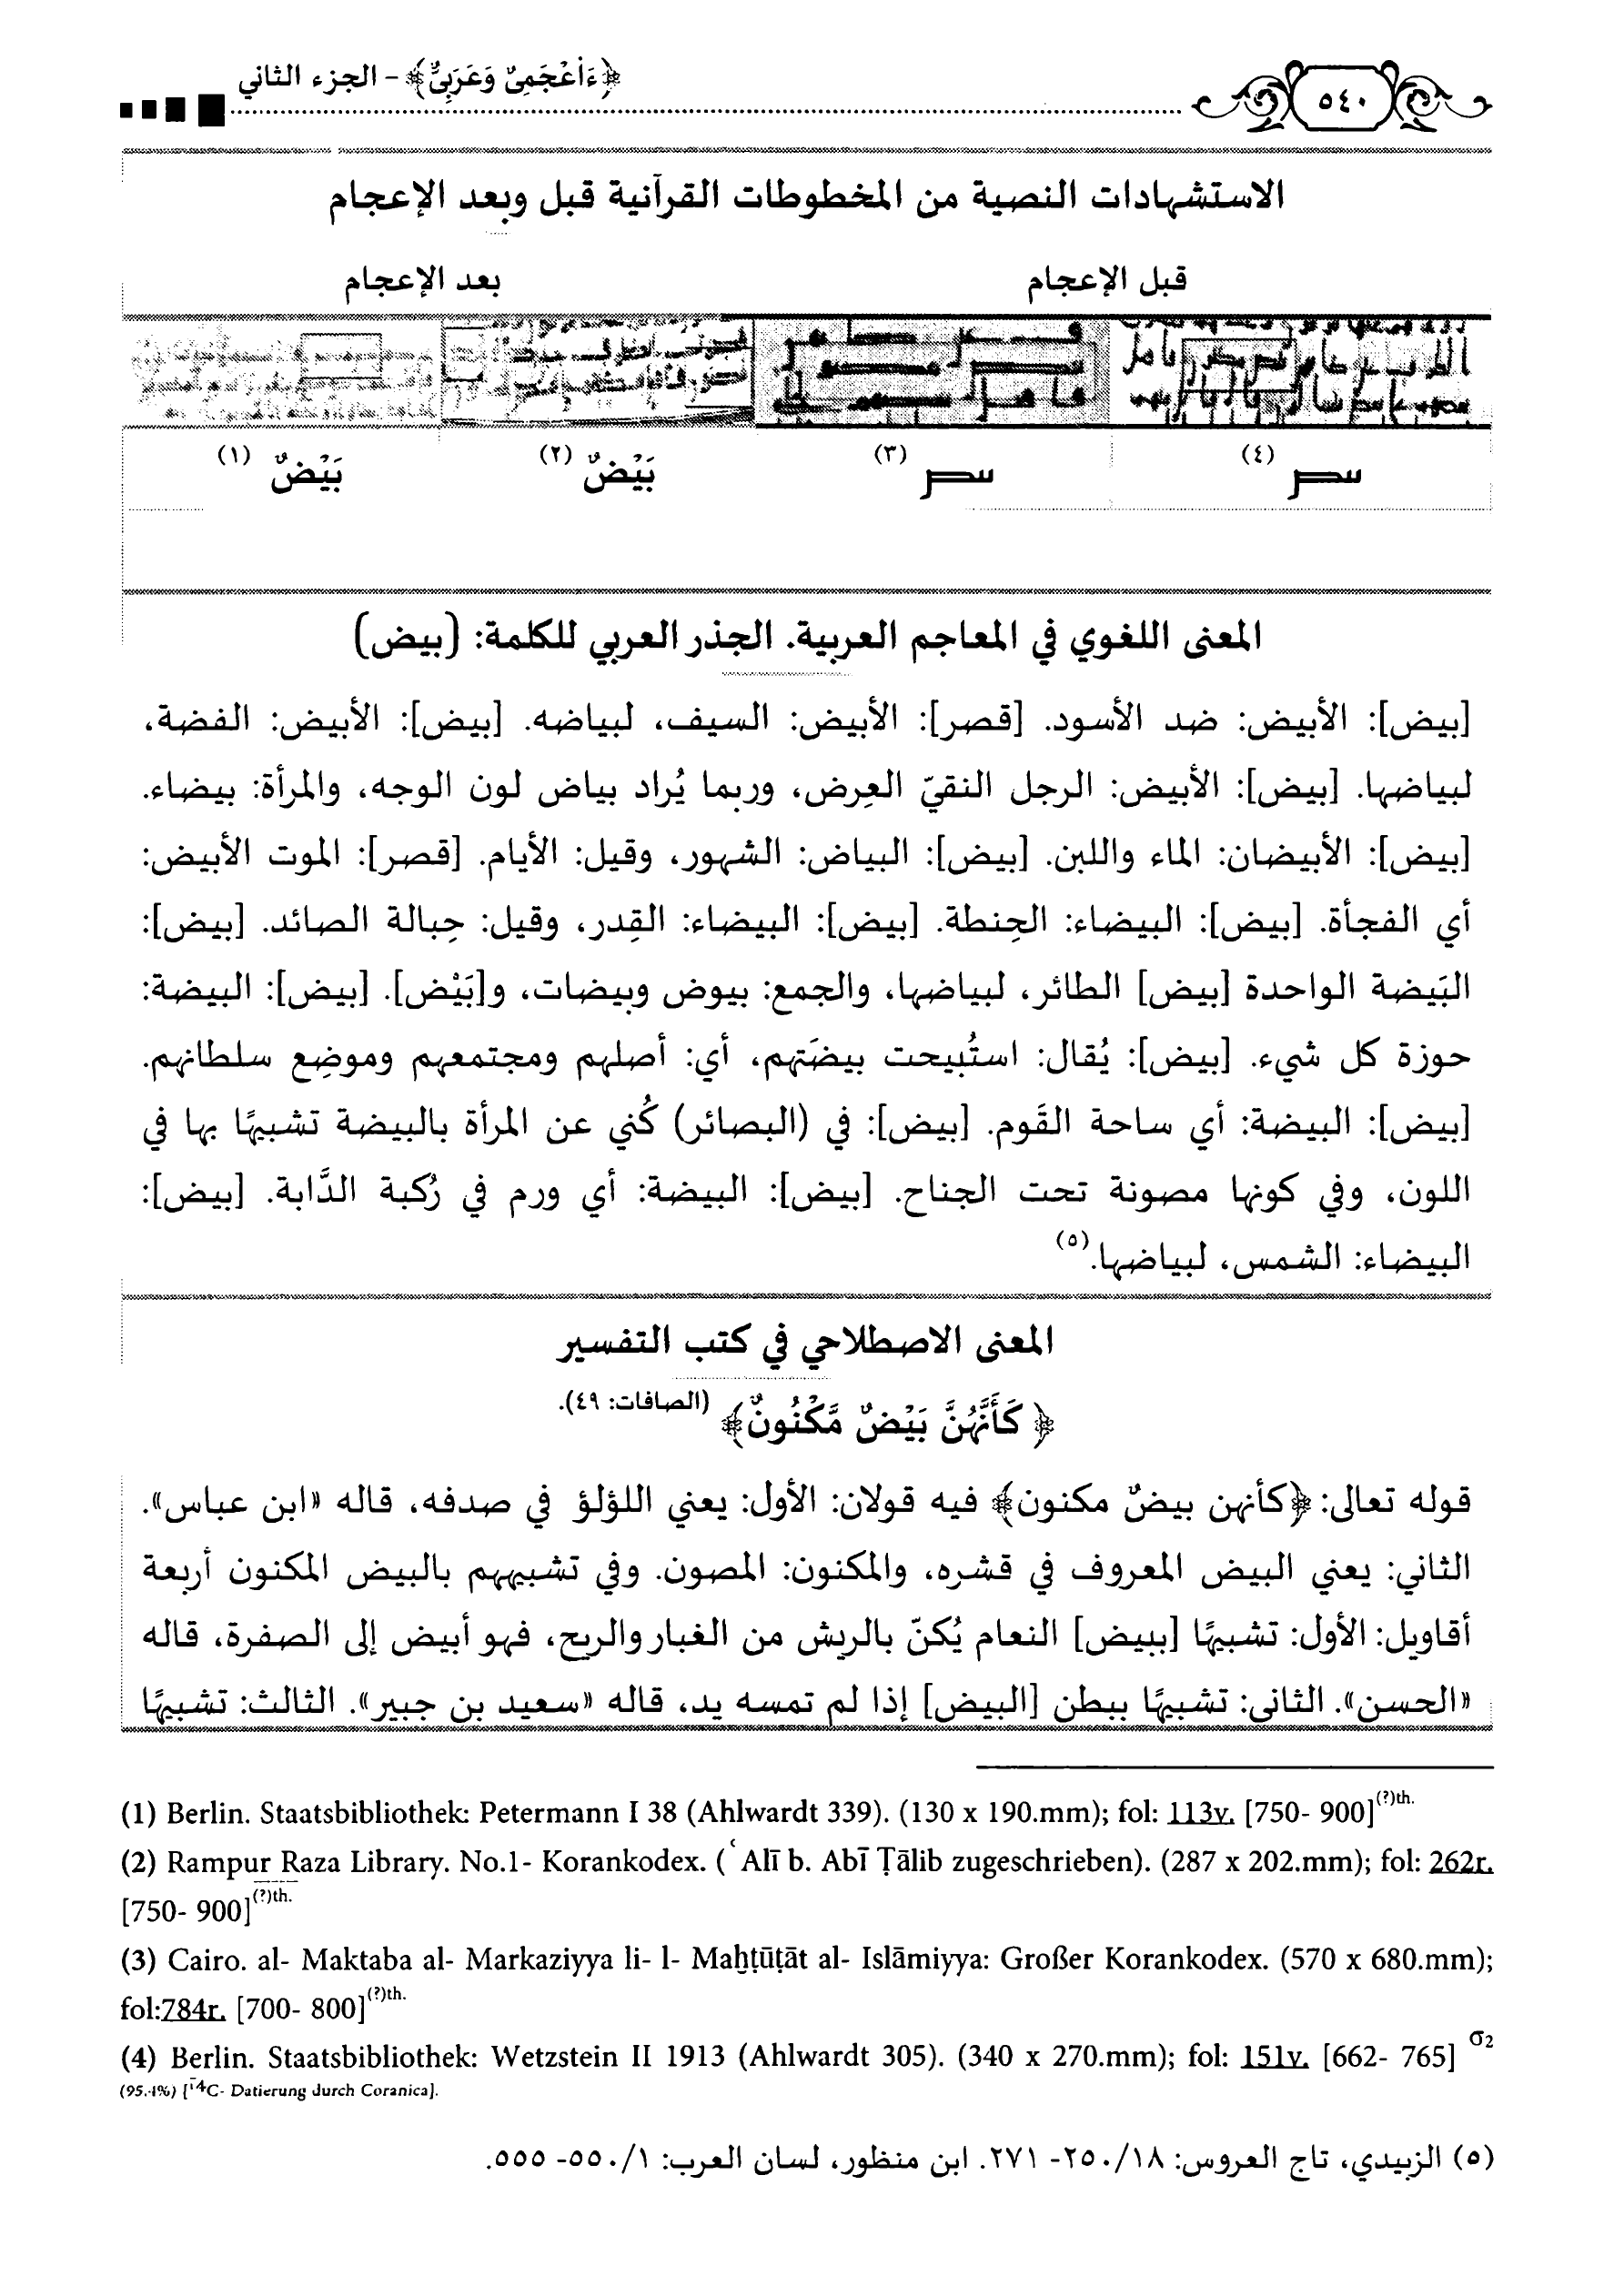 ﴿ءَاْعْجَمِىٌّ وَعَرَبِىٌّ﴾ - الجزء الثاني
٥٤٠
الاستشهادات النصية من المخطوطات القرآنية قبل وبعد الإعجام
قبل الإعجام
بعد الإعجام
(٤)
(٣)
بَيْضٌ (٢)
بَيْضٌ (١)
المعنى اللغوي في المعاجم العربية. الجذر العربي للكلمة: (بيض)
[بيض]: الأبيض: ضد الأسود. [قصر]: الأبيض: السيف، لبياضه. [بيض]: الأبيض: الفضة،
لبياضها. [بيض]: الأبيض: الرجل النقيّ العِرض، وربما يُراد بياض لون الوجه، والمرأة: بيضاء.
[بيض]: الأبيضان: الماء واللبن. [بيض]: البياض: الشهور، وقيل: الأيام. [قصر]: الموت الأبيض:
أي الفجأة. [بيض]: البيضاء: الحِنطة. [بيض]: البيضاء: القِدر، وقيل: حِبالة الصائد. [بيض]:
البَيضة الواحدة [بيض] الطائر، لبياضها، والجمع: بيوض وبيضات، و[بَيْض]. [بيض]: البيضة:
حوزة كل شيء. [بيض]: يُقال: استُبيحت بيضَتهم، أي: أصلهم ومجتمعهم وموضِع سلطانهم.
[بيض]: البيضة: أي ساحة القَوم. [بيض]: في (البصائر) كُني عن المرأة بالبيضة تشبيهًا بها في
اللون، وفي كونها مصونة تحت الجناح. [بيض]: البيضة: أي ورم في رُكبة الدَّابة. [بيض]:
البيضاء: الشمس، لبياضها.(٥)
المعنى الاصطلاحي في كتب التفسير
﴿كَأَنَّهُنَّ بَيْضٌ مَّكْنُونٌ﴾ (الصافات: ٤٩).
قوله تعالى: ﴿كأنهن بيضٌ مكنون﴾ فيه قولان: الأول: يعني اللؤلؤ في صدفه، قاله «ابن عباس».
الثاني: يعني البيض المعروف في قشره، والمكنون: المصون. وفي تشبيههم بالبيض المكنون أربعة
أقاويل: الأول: تشبيهًا [ببيض] النعام يُكنّ بالريش من الغبار والريح، فهو أبيض إلى الصفرة، قاله
«الحسن». الثاني: تشبيهًا ببطن [البيض] إذا لم تمسه يد، قاله «سعيد بن جبير». الثالث: تشبيهًا
(1) Berlin. Staatsbibliothek: Petermann I 38 (Ahlwardt 339). (130 x 190.mm); fol: 113v. [750- 900](?)th.
(2) Rampur Raza Library. No.1- Korankodex. (ʿAlī b. Abī Ṭālib zugeschrieben). (287 x 202.mm); fol: 262r.
[750- 900](?)th.
(3) Cairo. al- Maktaba al- Markaziyya li- l- Maḫṭūṭāt al- Islāmiyya: Großer Korankodex. (570 x 680.mm);
fol:784r. [700- 800](?)th.
(4) Berlin. Staatsbibliothek: Wetzstein II 1913 (Ahlwardt 305). (340 x 270.mm); fol: 151v. [662- 765] σ2
(95.4%) [14C- Datierung durch Coranica].
(٥) الزبيدي، تاج العروس: ٢٥٠/١٨- ٢٧١. ابن منظور، لسان العرب: ٥٥٠/١- ٥٥٥.